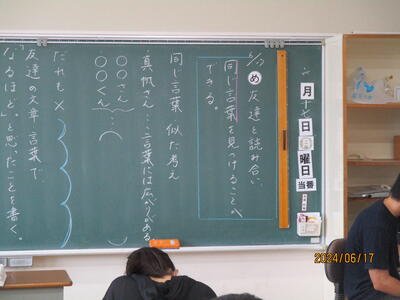 六月十七日月曜日
当番
6/17
め 友達と読み合い、
同じ言葉を見つけることが
できる。
同じ言葉 似た考え
真帆さん…言葉には広がりがある
○○さん
○○くん
だれも×
友達の文章、言葉で
「なるほど。」と思ったことを書く。
2024/06/17